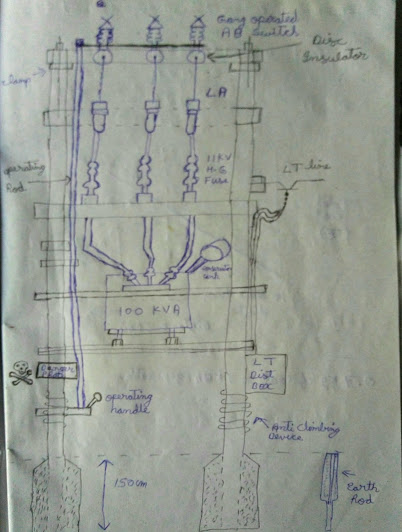 Gang operated
AB Switch
Disc
Insulator
clamp
LA
operating
Rod
11KV
H.G
Fuse
LT line
conservator
tank
100 KVA
Danger
Plate
LT
Dist
Box
operating
handle
Anti Climbing
Device
150cm
Earth
Rod